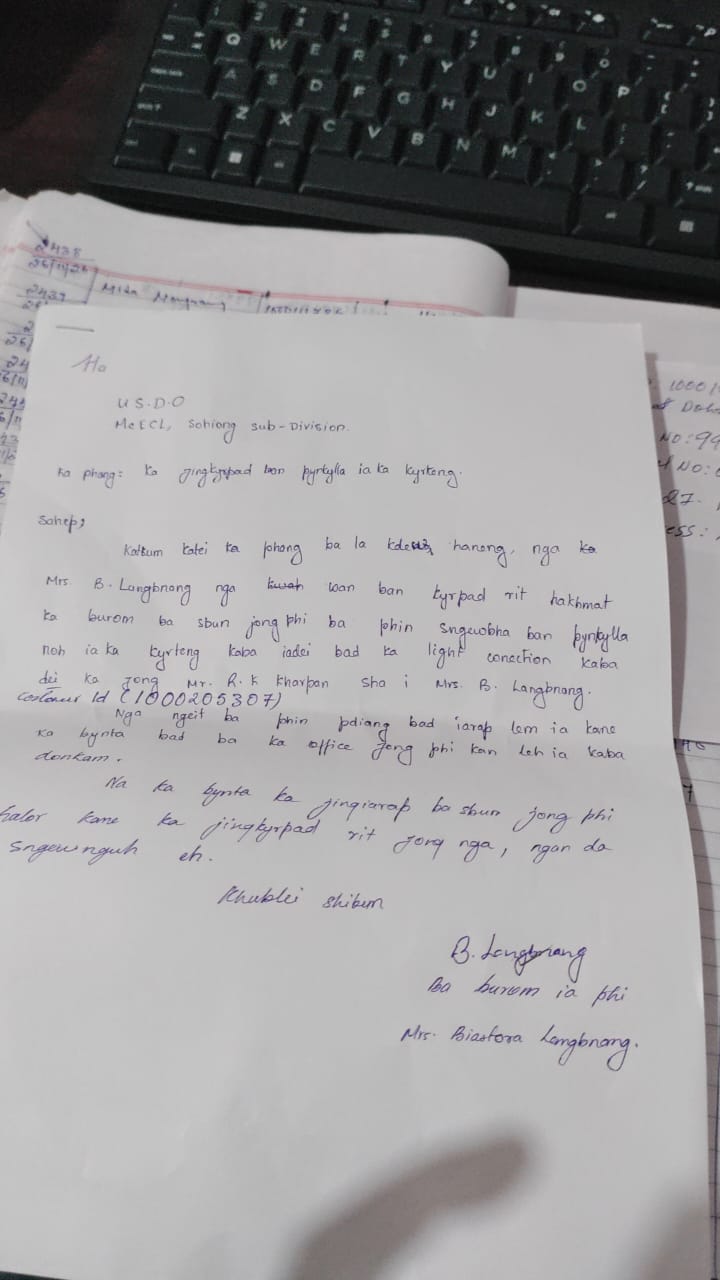 Q W E R T Y U I O P
A S D F G H J K L
Z X C V B N M
2438
26/11/2
2439
Mita
Ha
U S.D.O
MeECL, Sohiong Sub-Division.
Ka phang: Ka jingkyrpad ban pynkylla ia ka kyrteng.
Sahep,
Katkum katei ka phang ba la kdew haneng, nga ka
Mrs. B. Langbnang nga kwah wan ban kyrpad rit hakhmat
ka burom ba sbun jong phi ba phin sngewbha ban pynkylla
noh ia ka kyrteng kaba iadei bad ka light conection kaba
dei ka jong Mr. R. K Kharpan sha i Mrs. B. Langbnang.
Costomer Id (1000205307)
Nga ngeit ba phin pdiang bad iarap lem ia kane
ka bynta bad ba ka office jong phi kan leh ia kaba
donkam.
Na ka bynta ka jingiarap ba sbun jong phi
halor kane ka jingkyrpad rit jong nga, ngan da
sngewnguh eh.
Khublei shibun
B. Langbnang
Ba burom ia phi
Mrs. Biastora Langbnang.